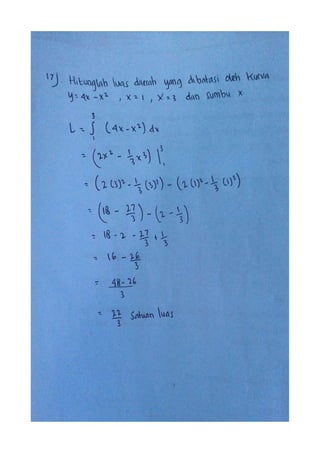 17) Hitunglah luas daerah yang dibatasi oleh kurva
y = 4x - x², x = 1, x = 3 dan sumbu x
L = ∫₁³ (4x - x²) dx
= (2x² - 1/3 x³) |₁³
= (2(3)² - 1/3 (3)³) - (2(1)² - 1/3 (1)³)
= (18 - 27/3) - (2 - 1/3)
= 18 - 2 - 27/3 + 1/3
= 16 - 26/3
= 48 - 26 / 3
= 22/3 satuan luas